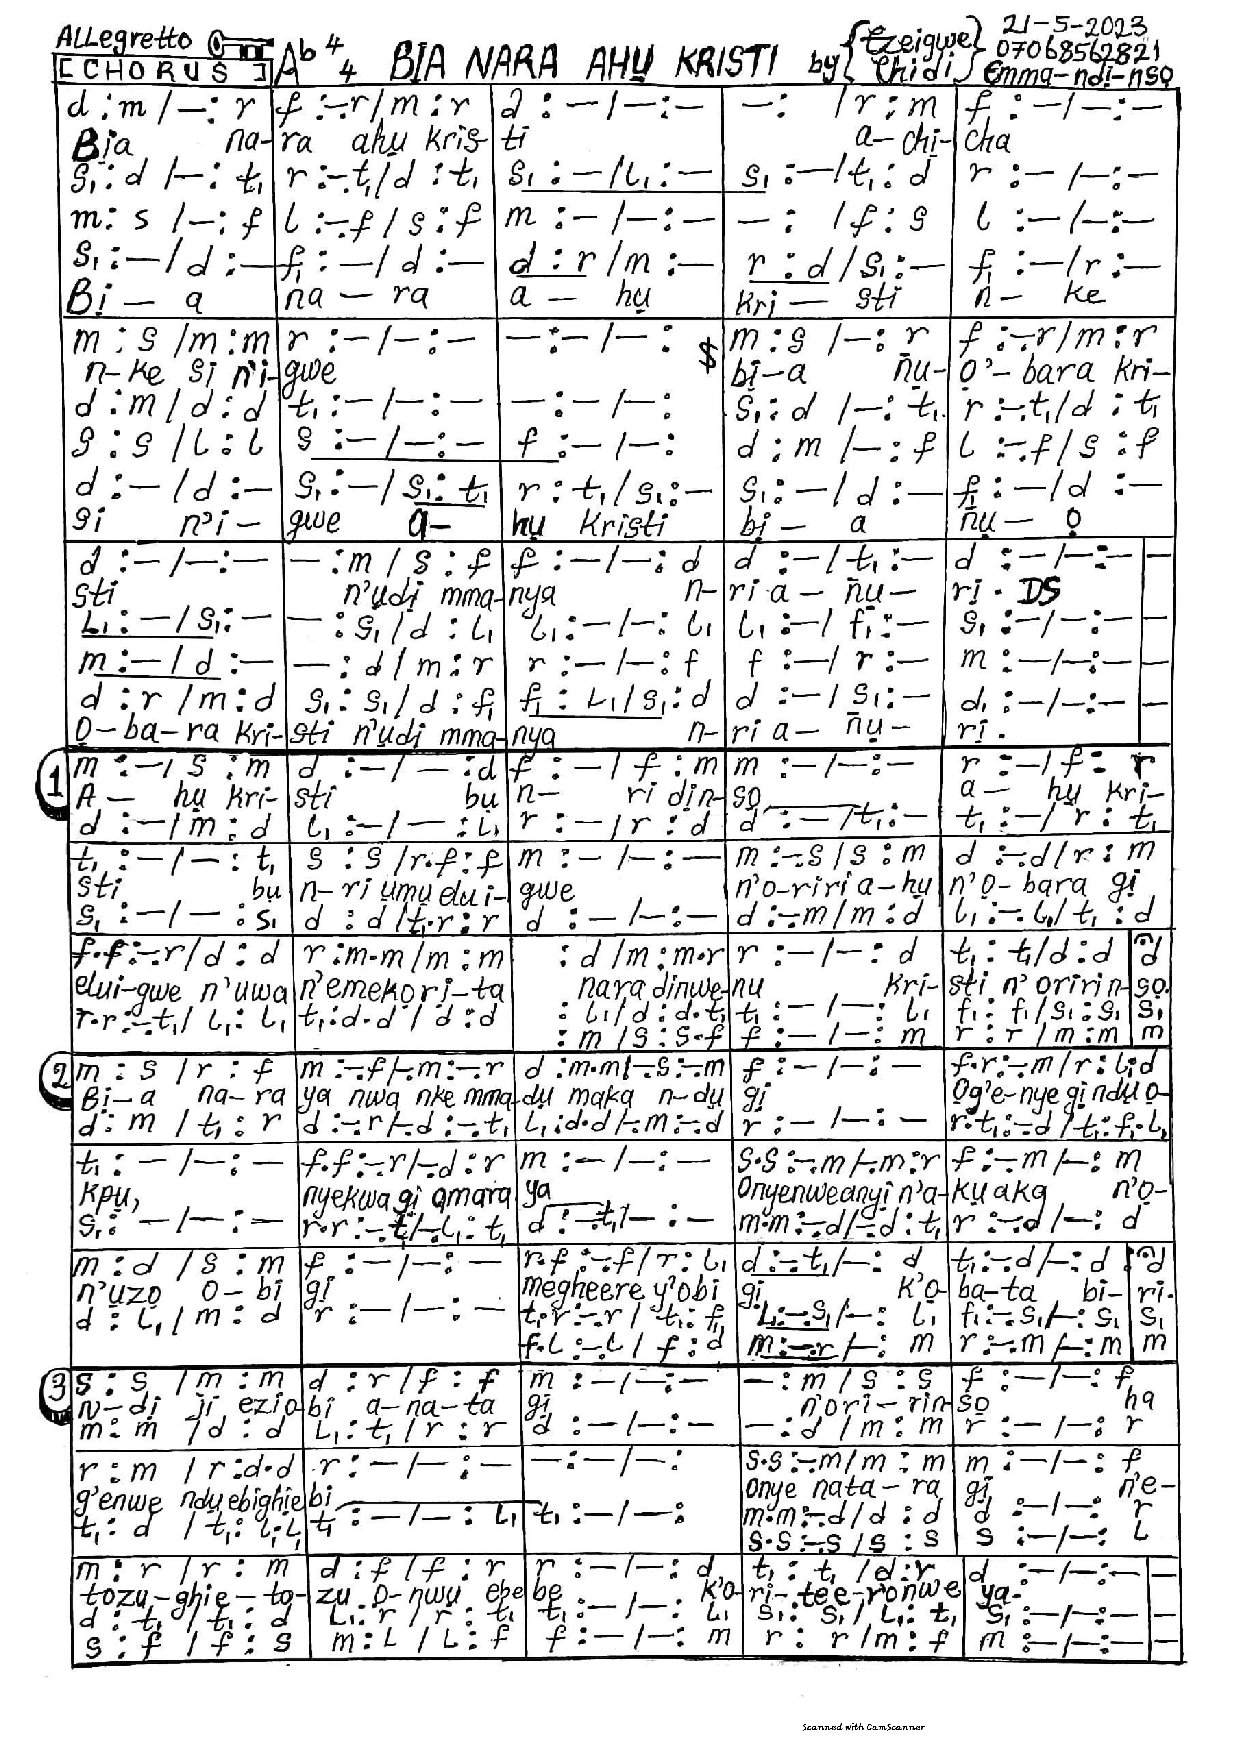 Allegretto
[CHORUS] Ab 4/4 BIA NARA AHỤ KRISTI by {Ezeigwe Chidi} 21-5-2023
07068562821
Emma-ndi-nsọ
d :m /—: r | f :–.r/m : r | d : —/—:— | —: /r : m | f : —/—:—
Bịa na- | ra ahụ Kris- | ti | a-chị- | cha
s₁: d /—: t₁ | r :–.t₁/d : t₁ | s₁ : —/l₁ :— | s₁ :—/t₁ : d | r :— /—:—
m: s /—: f | l :–.f / s : f | m : — /—: — | — : /f : s | l :—/—:—
s₁ :—/ d :— | f₁ : —/ d :— | d : r /m :— | r : d/s₁ :— | f₁ :—/r :—
Bị — a | na — ra | a — hụ | kri — sti | n- ke
m : s /m :m | r :—/—:— | —:—/—: | $ m : s /—: r | f :–.r/m : r
n-ke si n'i- | gwe | | bị-a ñụ- | Ọ'- bara kri-
d : m / d : d | t₁ : —/—:— | —:—/—: | s₁ : d /—: t₁ | r :–.t₁/d : t₁
s : s / l : l | s :—/—:— | f :—/—: | d : m /—: f | l :–.f/ s : f
d :— / d :— | s₁ :—/ s₁ : t₁ | r : t₁ / s₁ :— | s₁ : —/ d :— | f₁ : —/ d :—
si n'i- | gwe a- | hụ Kristi | bị — a | ñụ — Ọ
d :—/—:— | —:m / s : f | f :—/—: d | d :—/ t₁ :— | d :—/—:— | —
sti | n'udi mma- | nya n- | ri a — ñụ- | rị. DS
l₁ : —/ s₁ :— | — : s₁ / d : l₁ | l₁ :—/—: l₁ | l₁ :—/ f₁ :— | s₁ :—/—:— | —
m :—/ d :— | —: d / m : r | r :—/—: f | f :—/ r :— | m :—/—:— | —
d : r / m : d | s₁ : s₁ / d : f₁ | f₁ : l₁ / s₁ : d | d :—/ s₁ :— | d₁ :—/—:— | —
Ọ-ba-ra Kri- | sti n'udi mma- | nya n- | ri a — ñụ- | rị.
1 m :—/ s : m | d :—/ — : d | f : —/ f : m | m :—/—:— | r :—/ f : r
A — hụ Kri- | sti bụ | n- ri din- | sọ | a — hụ Kri-
d :—/m : d | l₁ :—/— : l₁ | r :—/r : d | d :—/t₁ :— | t₁ :—/ r : t₁
t₁ : —/— : t₁ | s : s /r.f : f | m : —/—:— | m :–.s/ s : m | d :–.d/ r : m
sti bụ | n-ri ụmụ elu i- | gwe | n'o-riri a-hụ | n'Ọ-bara gị
s₁ : —/— : s₁ | d : d /t₁.r : r | d : —/—:— | d :–.m/m : d | l₁ :–.l₁/ t₁ : d
f.f :–.r/ d : d | r :m.m/m : m | : d /m : m.r | r :—/—: d | t₁ : t₁/d : d | d
elui-gwe n'ụwa | n'emekori-ta | nara dinwe- | nu Kri- | sti n' oririn- | sọ.
r.r :–.t₁/ l₁ : l₁ | t₁ :d.d / d : d | : l₁/d : d.t₁ | t₁ : —/—: l₁ | f₁ : f₁/s₁ : s₁ | s₁
: m / s : s.f | f :—/—: m | r : r / m : m | m
2 m : s / r : f | m :–.f/–.m :–.r | d :m.m/–.s :–.m | f :—/—:— | f.r :–.m / r : l₁.d
Bị-a na-ra | ya nwa nke mma- | dụ maka n-dụ | gị | Og'e-nye gị ndụ o-
d : m / t₁ : r | d :–.r/–.d :–.t₁ | l₁ :d.d/–.m :–.d | r :—/—:— | r.t₁ :–.d / t₁ : f₁.l₁
t₁ : —/—:— | f.f :–.r/–.d : r | m :—/—:— | s.s :–.m/–.m : r | f :–.m/—: m
kpụ, | nyekwa gị amara | ya | Onyenweanyi n'a- | kụ aka n'ọ-
s₁ : —/—:— | r.r :–.t₁/–.l₁ : t₁ | d :–.t₁/—:— | m.m :–.d/–.d : t₁ | r :–.d/—: d
m : d / s : m | f :—/—:— | r.f :–.f/ r : l₁ | d :–.t₁/—: d | t₁ :–.d/—: d | d
n'ụzọ o-bi | gị | megheere y'obi | gị k'ọ- | ba-ta bi- | ri.
d : l₁ / m : d | r :—/—:— | t₁.r :–.r/ t₁ : f₁ | l₁ :–.s₁/—: l₁ | f₁ :–.s₁/—: s₁ | s₁
f.l :–.l / f : d | m :–.r/—: m | r :–.m/—: m | m
3 s : s / m : m | d : r / f : f | m :—/—:— | —: m / s : s | f :—/—: f
N-di ji ezio | bi a-na-ta | gị | n'ori-rin- | sọ ha
m : m / d : d | l₁ : t₁ / r : r | d :—/—:— | —: d / m : m | r :—/—: r
r : m / r :d.d | r :—/—:— | —:—/—: | s.s :–.m/m : m | m :—/—: f
g'enwe ndụ ebighịe | bi | | onye nata-ra | gị n'e-
t₁ : d / t₁ : l₁.l₁ | t₁ :—/—: l₁ | t₁ :—/—: | m.m :–.d/d : d | d :—/—: r
s.s :–.s /s : s | s :—/—: l
m : r / r : m | d : f / f : r | r :—/—: d | t₁ : t₁ /d : r | d :—/—:— | —
tozu-ghie-to- | zu o-nwụ ebe | be k'o- | ri-tee-ronwe | ya-
d : t₁ / t₁ : d | l₁ : r / r : t₁ | t₁ :—/—: l₁ | s₁ : s₁/ l₁ : t₁ | s₁ :—/—:— | —
s : f / f : s | m : l / l : f | f :—/—: m | r : r/m : f | m :—/—:— | —
Scanned with CamScanner